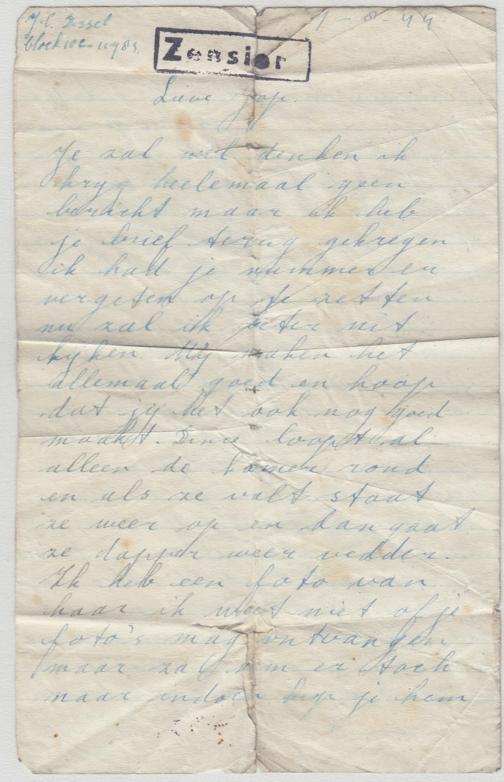 J.C. Dissel
1-8-44
block 10c-11985
Zensior
Lieve Jop.
Je zal wel denken ik
kryg heelemaal geen
bericht maar ik heb
je brief terug gekregen
ik had je nummer er
vergeten op te zetten
nu zal ik beter uit
kijken Wij maken het
allemaal goed en hoop
dat jij het ook nog goed
maakt. loopt al
alleen de kamer rond
en als ze valt staat
ze weer op en dan gaat
ze dapper weer vedder.
Ik heb een foto van
haar ik weet niet of je
foto's mag ontvangen
maar zal hem er toch
maar indoen krijg je hem